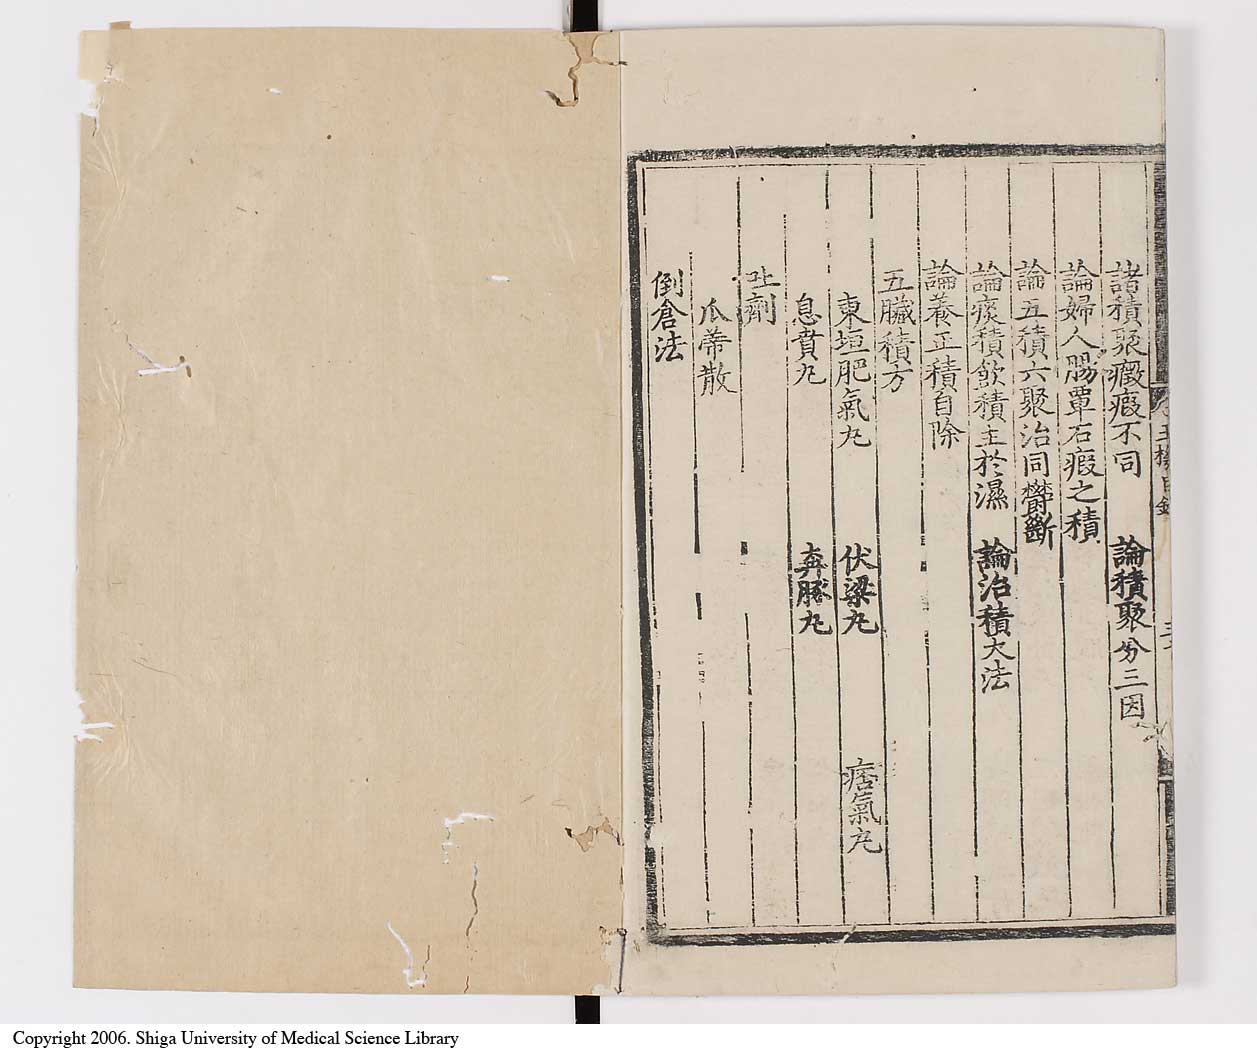 諸積聚癥瘕不同　論積聚分三因
論婦人腸覃石瘕之積
論五積六聚治同鬱斷
論痰積飲積主於濕　論治積大法
論養正積自除
五臟積方
東垣肥氣丸　伏梁丸　痞氣丸
息賁丸　奔豚丸
吐劑
瓜蒂散
倒倉法
Copyright 2006. Shiga University of Medical Science Library